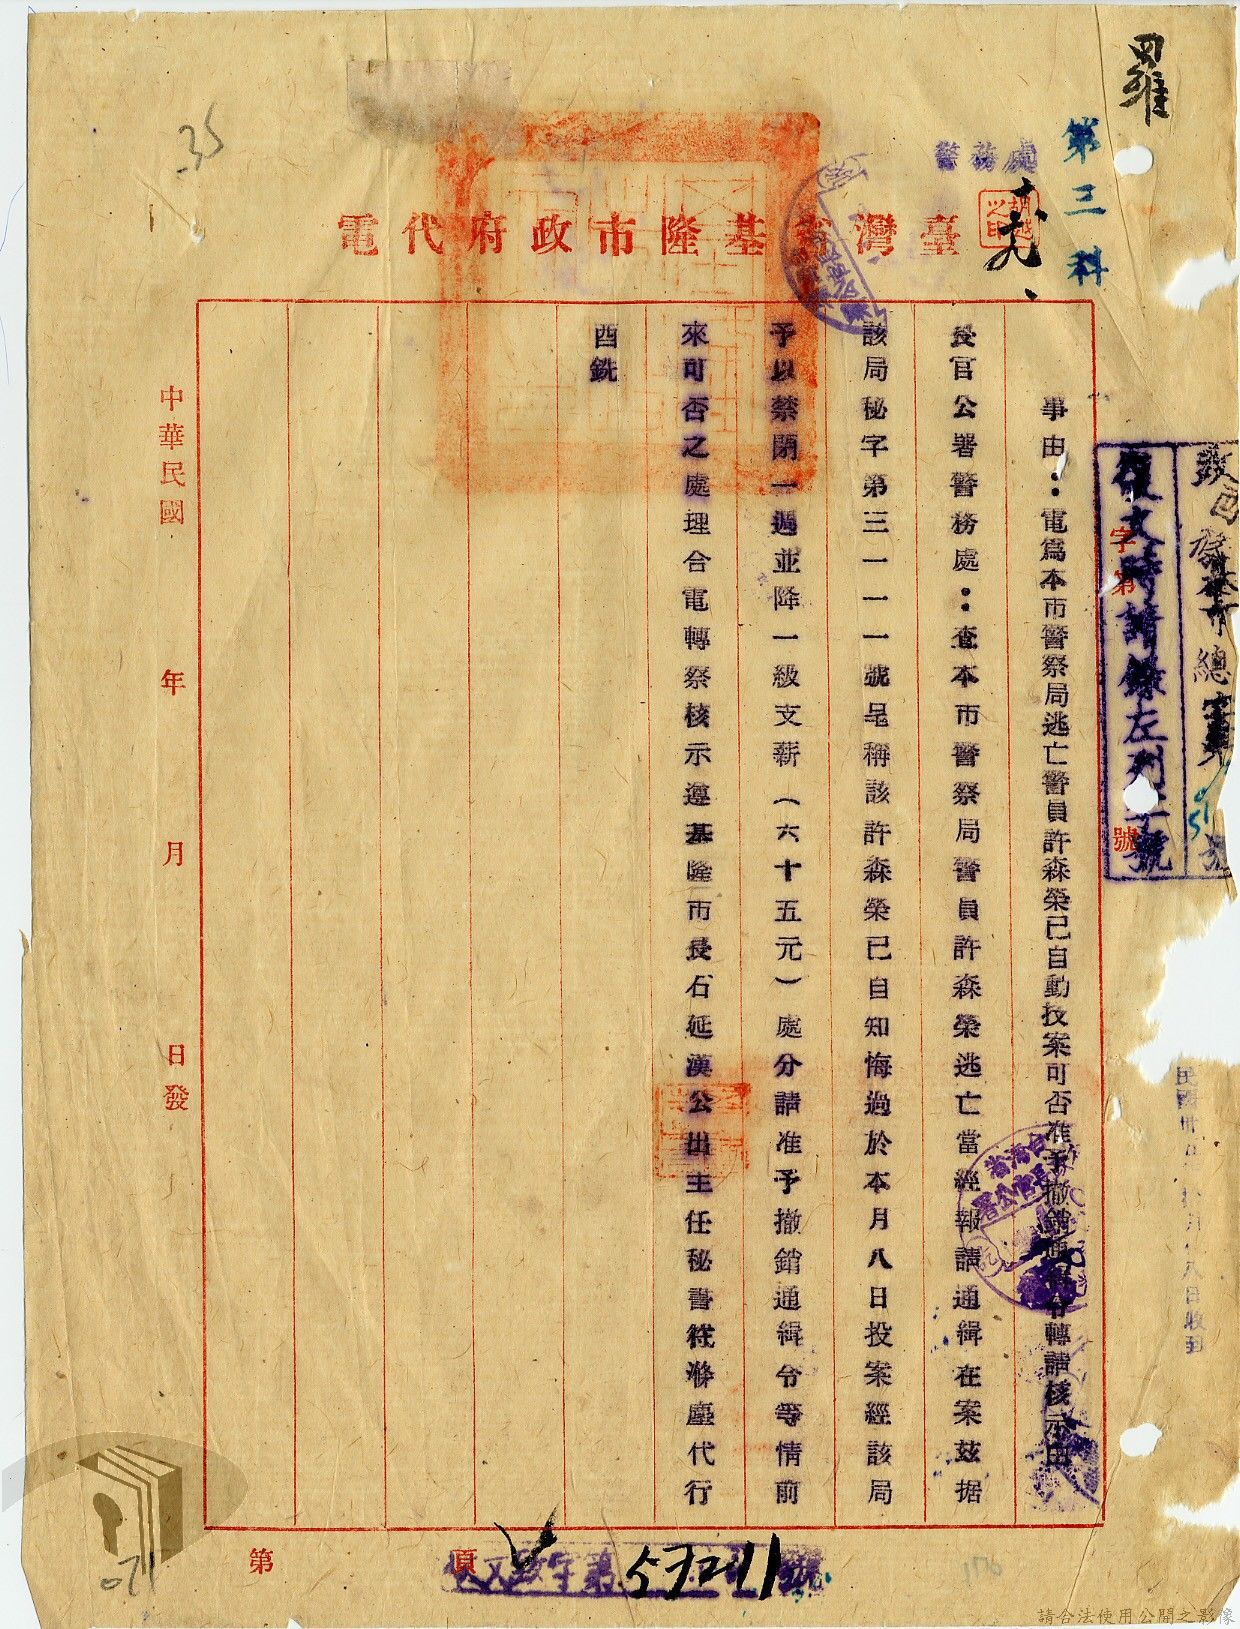 羅
第三科
警務處
35
臺灣省基隆市政府代電
復文時請錄左列字號
字第 號
事由：電為本市警察局逃亡警員許森榮已自動投案可否准予撤銷通緝令轉請核示由
長官公署警務處：查本市警察局警員許森榮逃亡當經報請通緝在案茲据
該局秘字第三一一一號呈稱該許森榮已自知悔過於本月八日投案經該局
予以禁閉一週並降一級支薪（六十五元）處分請准予撤銷通緝令等情前
來可否之處理合電轉祭核示遵基隆市長石延漢公出主任秘書符滌塵代行
酉銑
中華民國 年 月 日發
第 頁
53211
071
176
請合法使用公開之影像